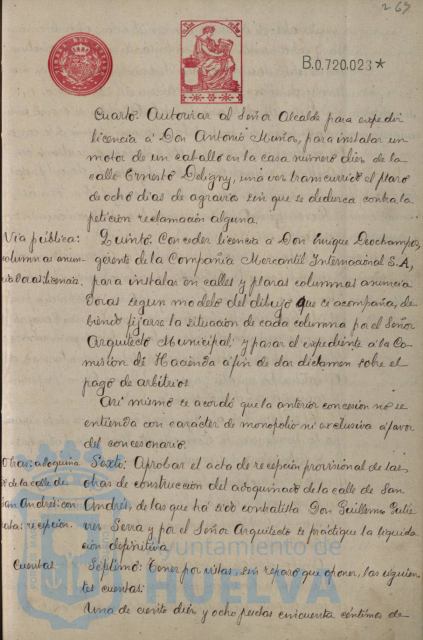 269
B.0.720.023*
Cuarto: Autorizar al Señor Alcalde para expedir
licencia á Don Antonio Muñoz, para instalar un
motor de un caballo en la casa número diez de la
calle Ernesto Deligny, una vez transcurrido el plazo
de ocho dias de agravio sin que se deduzca contra la
petición reclamación alguna.
Via pública:
columnas anun-
ciadoras: licencia.
Quinto: Conceder licencia á Don Enrique Deochampos,
gerente de la Compañia Mercantil Internacional S.A,
para instalar en calles y plazas columnas anuncia
doras segun modelo del dibujo que se acompaña, de-
biendo fijarse la situación de cada columna por el Señor
Arquitecto Municipal: y pasar el expediente á la Co-
misión de Hacienda á fin de dar dictamen sobre el
pago de arbitrios.
Asi mismo se acordó que la anterior concesion no se
entienda con carácter de monopolio ni exclusiva á favor
del concesionario.
Obras: adoquina
do de la calle de
San Andrés: con
recepción.
Sexto: Aprobar el acta de recepción provisional de las
obras de construcción del adoquinado de la calle de San
Andrés, de las que há sido contratista Don Guillermo Gutie
rrez Serra y por el Señor Arquitecto se practique la liquida
ción definitiva.
Cuentas.
Séptimo: Tener por vistas, sin reparo que oponer, las siguien
tes cuentas:
Una de ciento diez y ocho pesetas cincuenta céntimos de
Ayuntamiento de
HUELVA